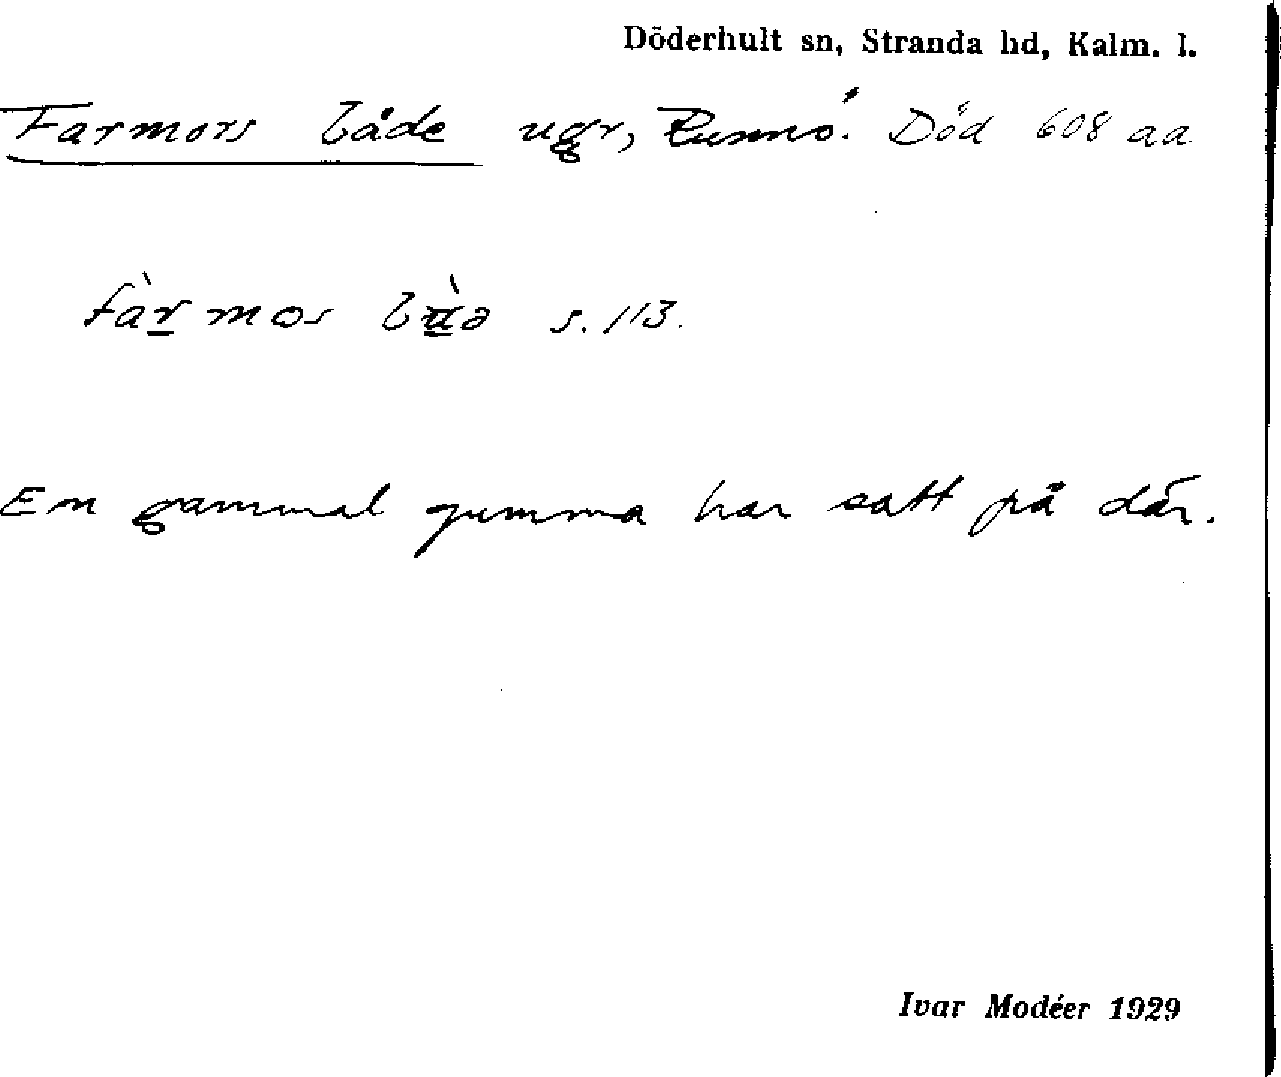 Döderhult sn, Stranda hd, Kalm. l.
Farmors både ugr, Runnö. Död 608 aa
s. 113.
En gammal gumma har satt på där.
Ivar Modéer 1929